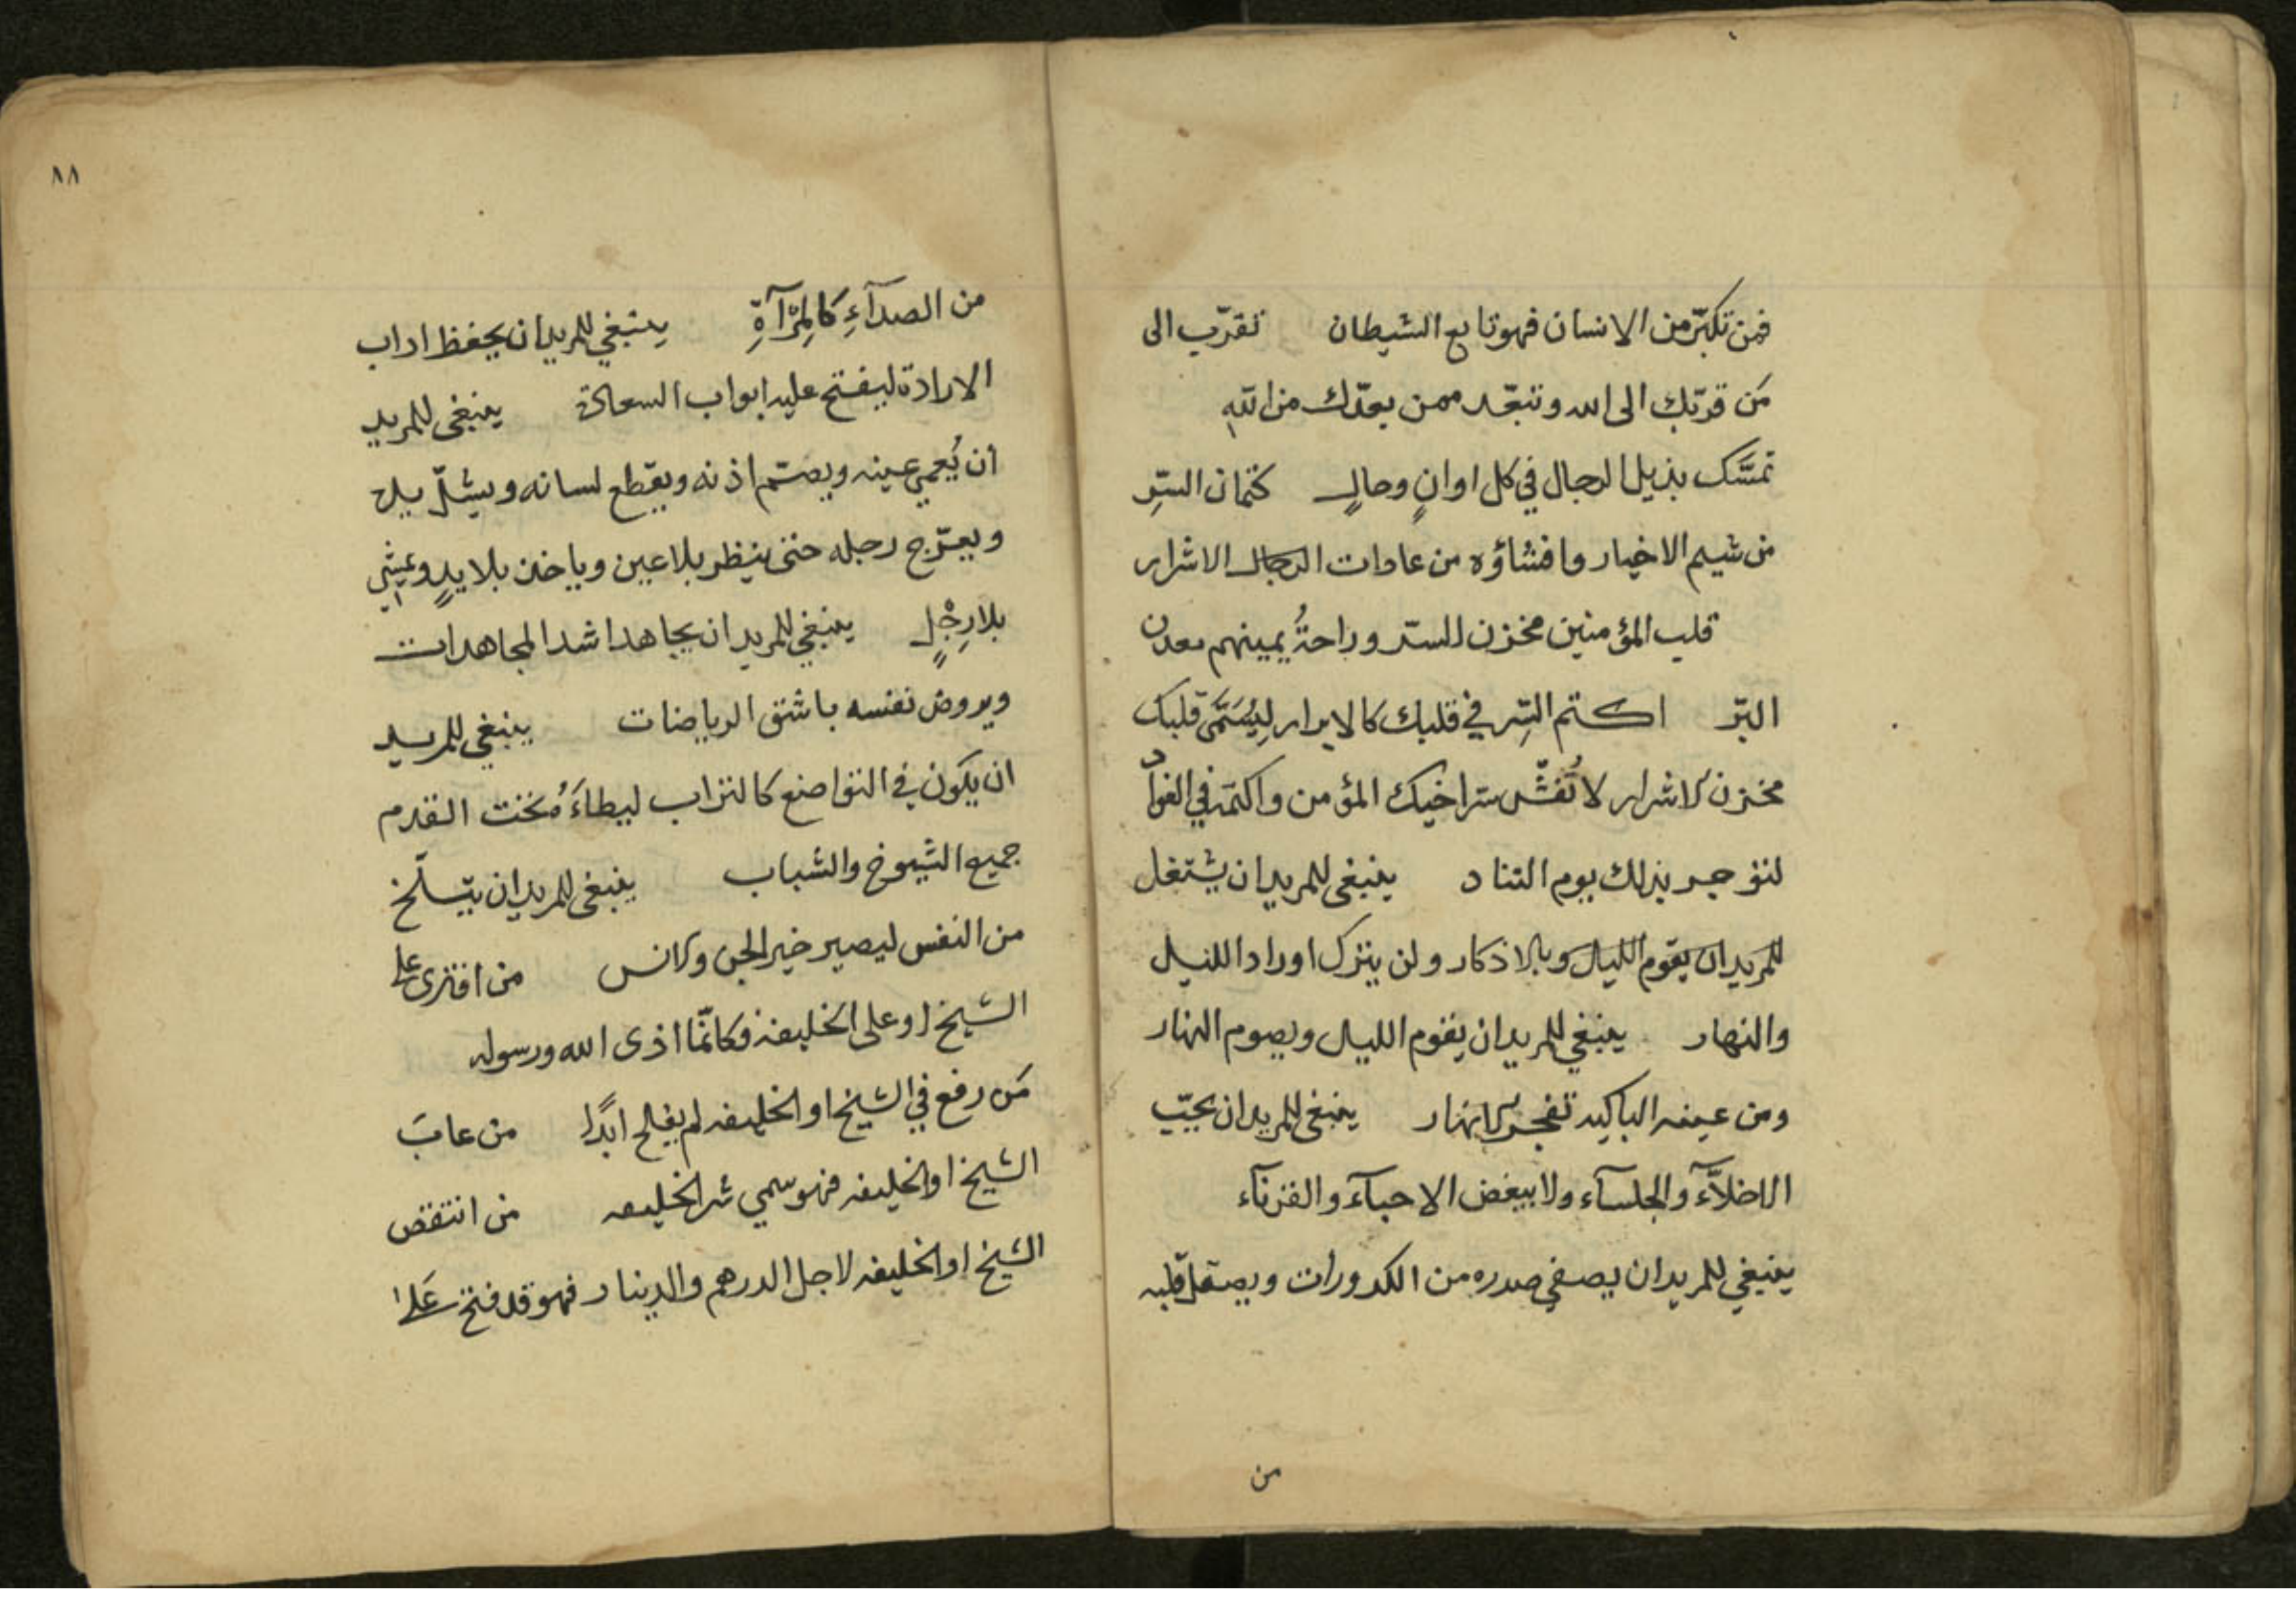 فمن تكبّر من الانسان فهو تابع الشيطان تقرّب الى
مَن قرّبك الى الله وتبعّد ممن بعدّك من الله
تمسّك بذيل الرجال في كل اوانٍ وحالٍ كتمان السِّر
من شيم الاخيار وافشاؤه من عادات الرجال الاشرار
قلب المؤمنين مخزن للسّر وراحةُ يمينهم معدن
البّر اكتم السِّر في قلبك كالابرار لِيُسَمَّى قلبك
مخزن الاسرار لا تُفشِّ سّر اخيك المؤمن واكتمه في الفوآد
لتؤجر بذلك يوم التناد ينبغي للمريد ان يشتغل
للمريد ان يقوم الليال وبالاذكار ولن يترك اوراد الليل
والنهار ينبغي للمريد ان يقوم الليال ويصوم النهار
ومن عينه الباكيه تفجر الانهار ينبغي للمريد ان يحبّ
الاخلّآء والجلسآء ولا يبغض الاحبآء والقرنآء
ينبغي للمريد ان يصفي صدره من الكدورات ويصقل قلبه
من
٨٨
من الصدآءِ كالمِرْآةِ ينبغي للمريد ان يحفظ اداب
الارادة ليفتح عليه ابواب السعادة ينبغي للمريد
ان يُعمي عينه ويصمّم اذنه ويقطع لسانه ويشلّ يده
ويعرّج رجله حتى ينظر بلا عين وياخذ بلا يدٍ ويمشي
بلا رِجْلٍ ينبغي للمريد ان يجاهد اشد المجاهدات
ويروض نفسه باشق الرياضات ينبغي للمريد
ان يكون في التواضع كالتراب ليطاءَهُ تحت القدم
جميع الشيوخ والشباب ينبغي للمريد ان يتسلّخ
من النفس ليصير خير الجن والانس من افترى على
الشيخ او على الخليفة فكانمّا اذى الله ورسوله
مَن رفع في الشيخ او الخليفه لم يفلح ابدًا من عابَ
الشيخ او الخليفه فهو سمي شر الخليفه من انتقض
الشيخ او الخليفه لاجل الدرهم والدينار فهو قد فتح عَلى